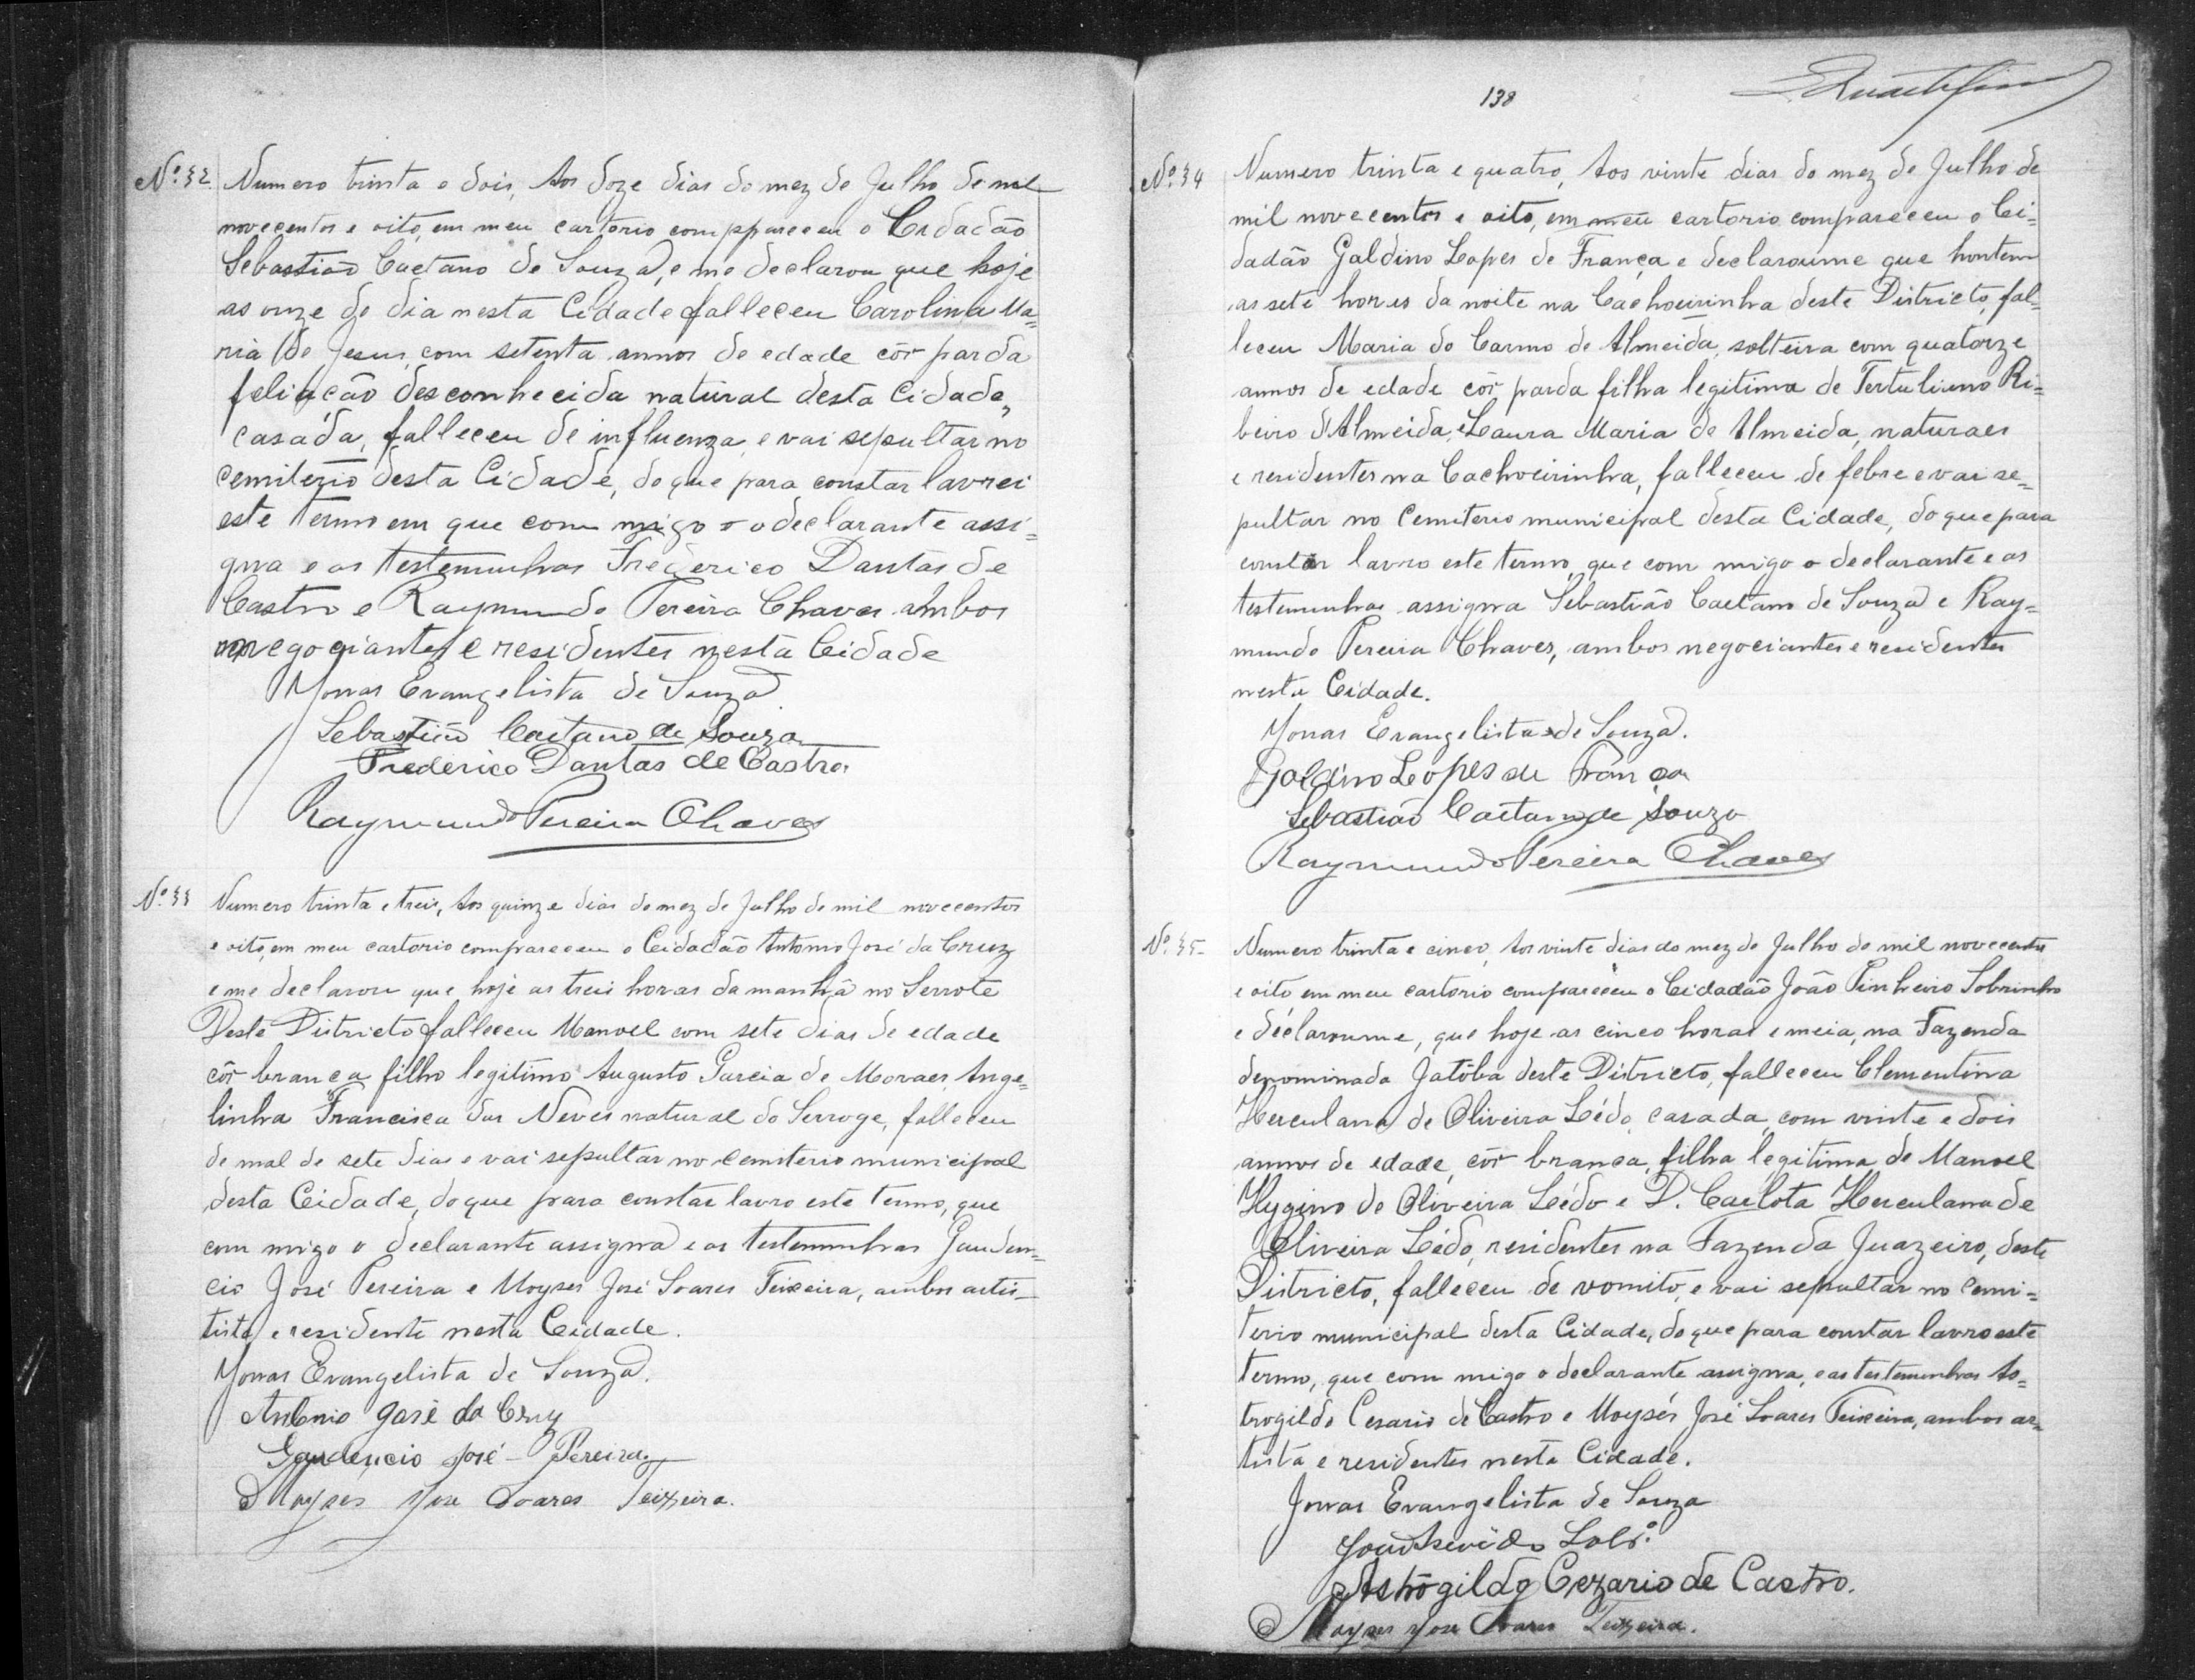 Nº 32 Numero trinta e dois, Aos doze dias do mez de Julho de mil
novecentos e oito, em meu cartorio comppareceu o Cidadão
Sebastião Caetano de Souza, e me declarou que hoje
as onze do dia nesta Cidade falleceu Carolina Ma=
ria de Jesus, com setenta annos de edade côr parda
feliação desconhecida natural desta Cidade,
casada, falleceu de influenza, e vai sepultar no
cemiterio desta Cidade, do que para constar lavrei
este termo em que com migo o declarante assi=
gna e as testemunhas Frederico Dantas de
Castro e Raymundo Pereira Chaves ambos
negociantes e residentes nesta Cidade
Yonas Evangelista de Souza
Sebastião Caetano de Souza
Frederico Dantas de Castro
Raymundo Pereira Chaves
Nº 33 Numero trinta e treis, Aos quinze dias do mez de Julho de mil novecentos
e oito, em meu cartorio compareceu o Cidadão Antonio José da Cruz
e me declarou que hoje as treis horas da manhã no Serrote
Deste Districto falleceu Manoel com sete dias de edade
côr branca filho legitimo Augusto Garcia de Moraes, Ange=
linha Francisca das Neves natural do Serroge, falleceu
de mal de sete dias e vai sepultar no cemiterio municipal
desta Cidade, do que para constar lavro este termo, que
com migo o declarante assigna e as testemunhas Gauden=
cio José Pereira e Moyses José Soares Teixeira, ambos artis=
tista e residente nesta Cidade.
Yonas Evangelista de Souza.
Antonio José da Cruz
Gaudencio José Pereira
Moyses Jose Soares Teixeira.
138
Nº 34 Numero trinta e quatro, Aos vinte dias do mez de Julho de
mil novecentos e oito, em meu cartorio compareceu o Ci=
dadão Galdino Lopes de França e declaroume que hontem
as sete horas da noite na Cachoeirinha deste Districto, fal=
leceu Maria do Carmo de Almeida, solteira com quatorze
annos de edade côr parda filha legitima de Tertuliano Ri=
beiro d'Almeida, e Laura Maria de Almeida, naturaes
e residentes na Cachoeirinha, falleceu de febre e vai se=
pultar no Cemiterio municipal desta Cidade, do que para
constar lavro este termo, que com migo o declarante e as
testemunhas assigna Sebastião Caetano de Souza e Ray=
mundo Pereira Chaves, ambos negociantes e residentes
nesta Cidade.
Yonas Evangelista de Souza.
Galdino Lopes de França
Sebastião Caetano de Souza
Raymundo Pereira Chaves
Nº 35 Numero trinta e cinco, Aos vinte dias do mez de Julho de mil novecentos
e oito em meu cartorio compareceu o Cidadão João Pinheiro Sobrinho
e déclaroume, que hoje as cinco horas e meia, na Fazenda
denominada Jatôba deste Districto, falleceu Clementina
Herculana de Oliveira Lédo, casada, com vinte e dois
annos de edade, côr branca, filha legitima de Manoel
Hygino de Oliveira Lédo e D. Carlota Herculana de
Oliveira Lédo, residentes na Fazenda Juazeiro, deste
Districto, falleceu de vomito, e vai sepultar no cemi=
terio municipal desta Cidade, do que para constar lavro este
termo, que com migo o declarante assigna, e as testemunhas As=
trogildo Cesario de Castro e Moysés José Soares Teixeira, ambos ar=
tista e residentes nesta Cidade.
Jonas Evangelista de Souza
Astrogildo Cezario de Castro.
Moyses Jose Soares Teixeira.